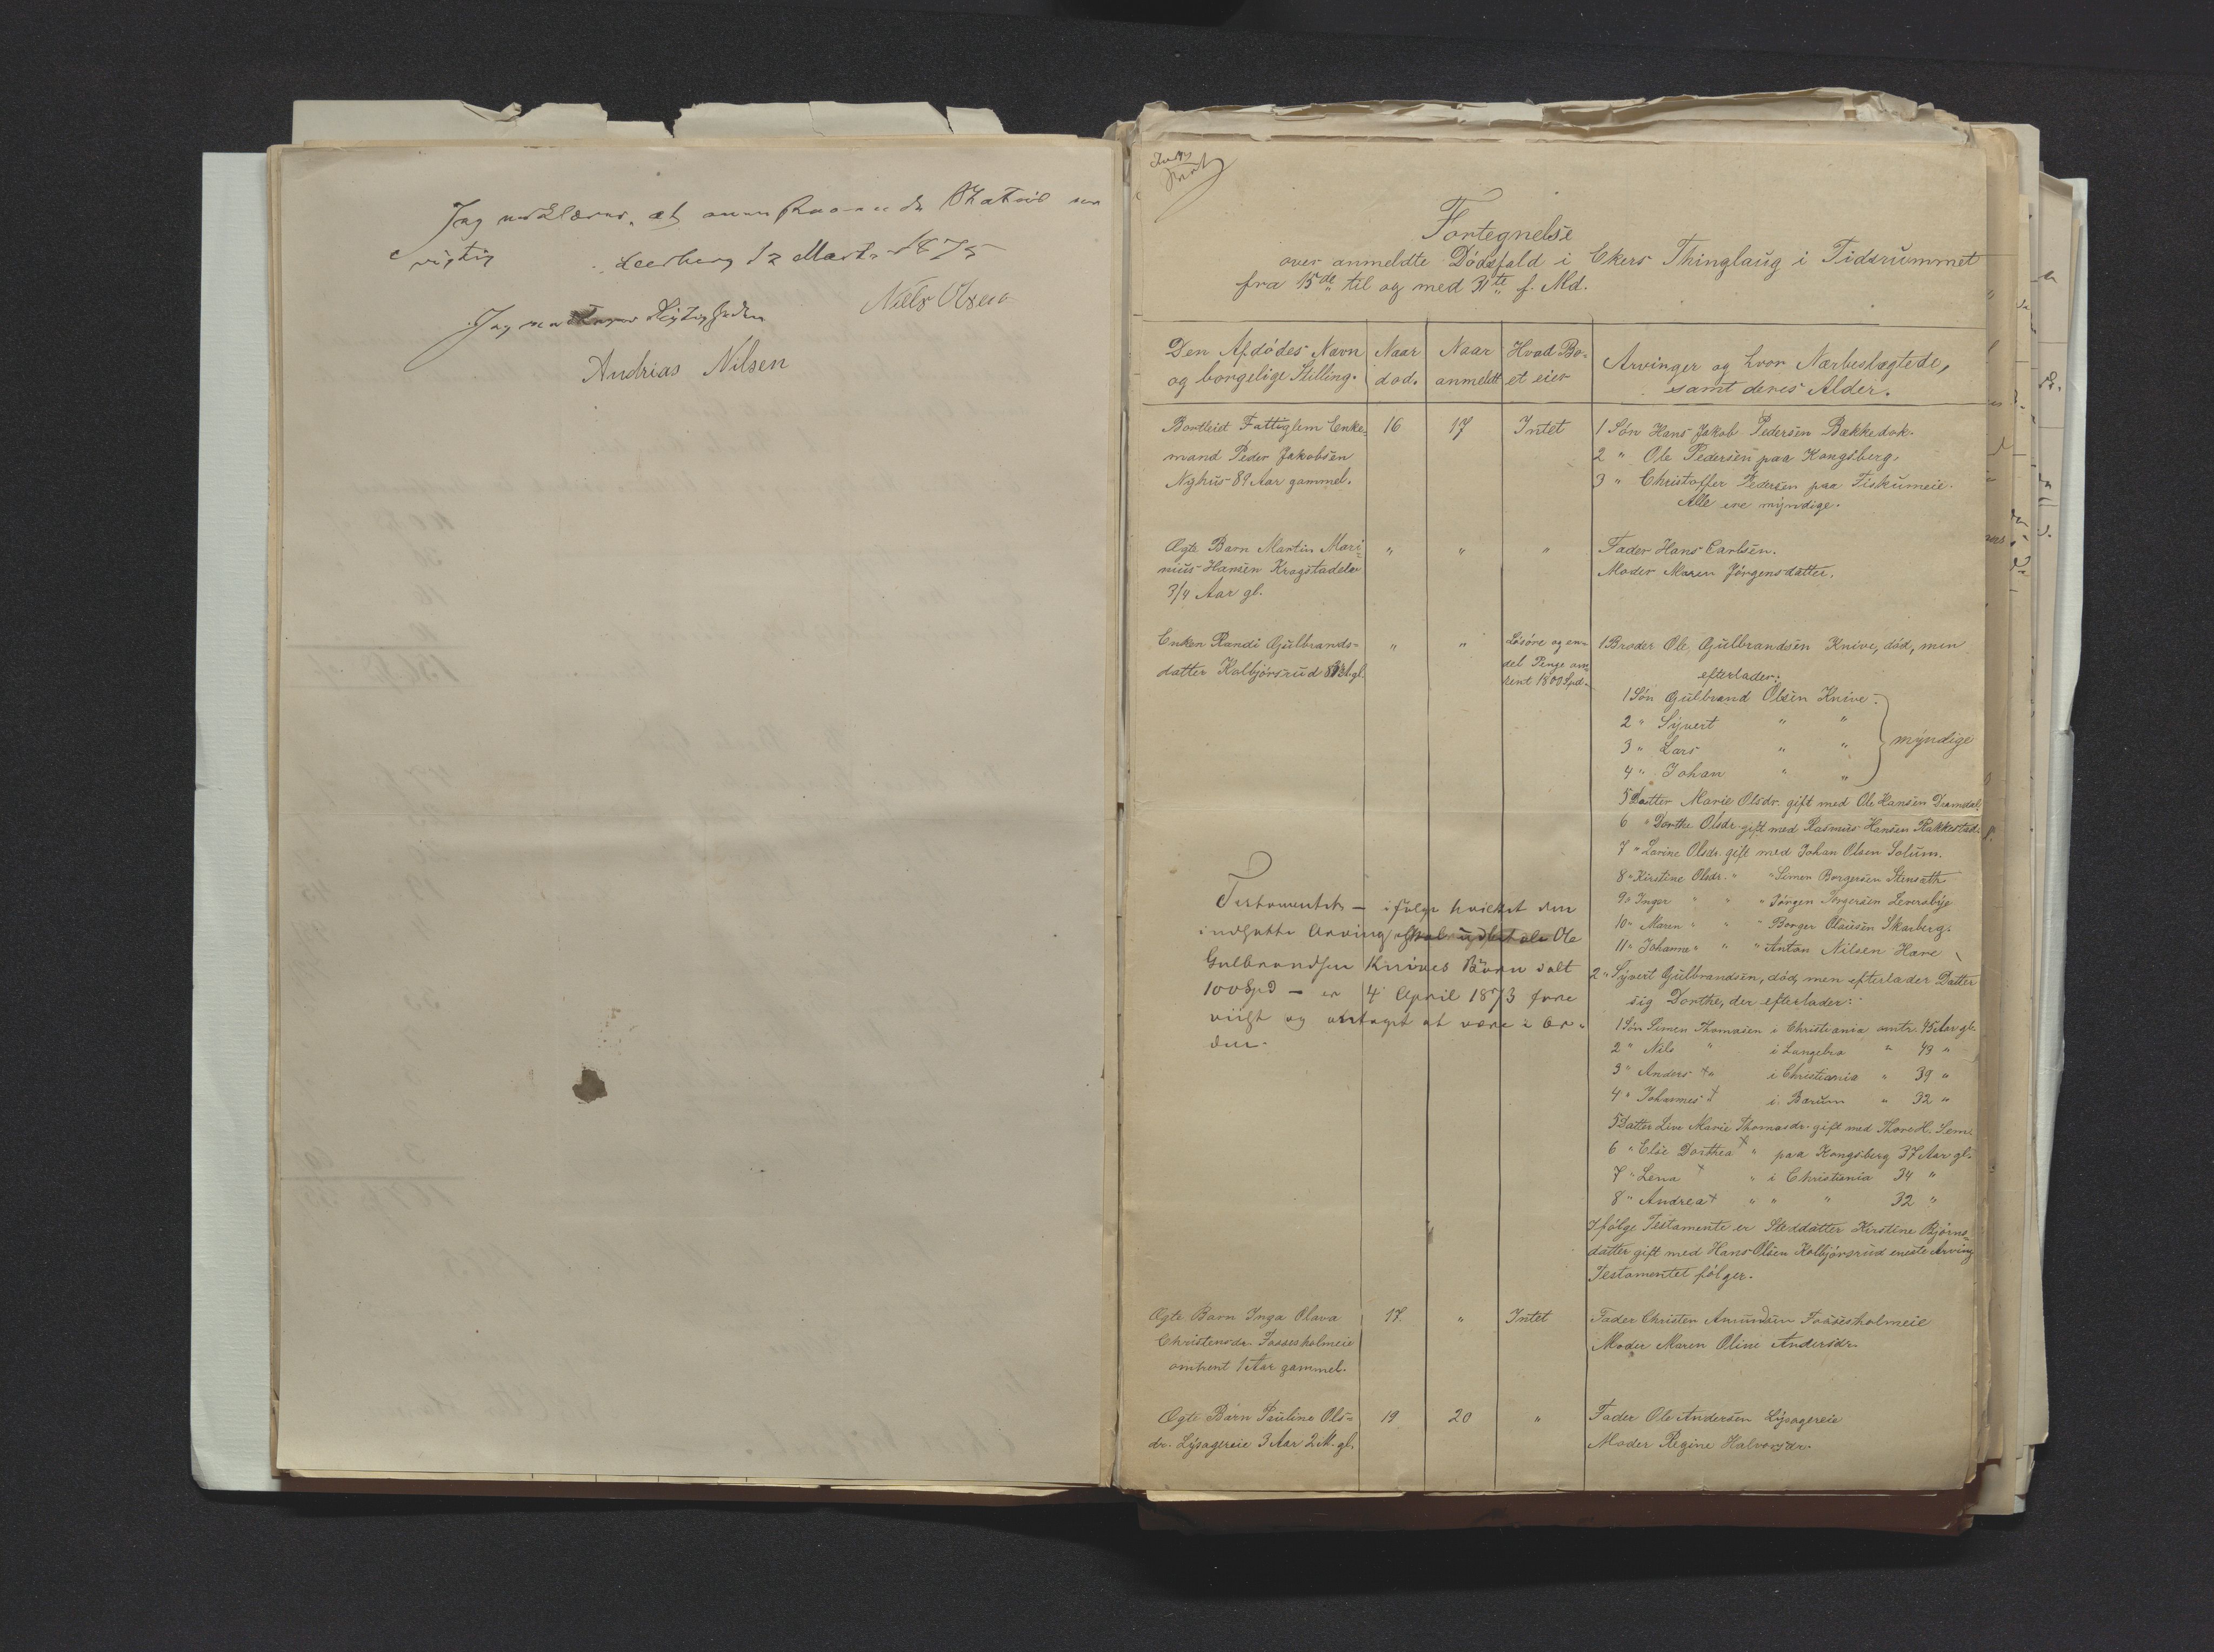 Jag erklærer, at
rigtig
Leerberg 12 Marts 1875
Niels Olsen
Andrias Nilsen
Fortegnelse
over anmeldte Dødsfald i Ekers Thinglaug i Tidsrummet
fra 15de til og med 31te f. Md.
Den Afdødes Navn
og borgelige Stilling.
Naar
død.
Naar
anmeldt
Hvad Bo-
et eier
Arvinger og hvor Nærbeslægtede,
samt deres Alder.
Bortleiet Fattiglem Enke-
mand Peder Jakobsen
Nyhus 89 Aar gammel.
16
17
Intet
1 Søn Hans Jakob Pedersen Bækkedok.
2 " Ole Pedersen paa Kongsberg.
3 " Christoffer Pedersen paa Fiskumeie.
Alle ere myndige.
Ægte Barn Martin Mari-
nius Hansen Krogstadelv
3/4 Aar gl.
"
"
"
Fader Hans Carlsen.
Moder Maren Jørgensdatter.
Enken Randi Gulbrands-
datter Kolbjørsrud gl.
"
"
Løsøre og en-
del Penge om-
kent 1800 Spd.
1 Broder Ole Gulbrandsen Knive, død, men
efterlader:
1 Søn Gulbrand Olsen Knive
2 " Syvert " "
3 " Lars " "
4 " Johan " "
myndige
5 Datter Marie Olsdr. gift med Ole Hansen Dramdal
6 " Dorthe Olsdr. gift med Rasmus Hansen Rakkestad
7 " Lovine Olsdr. gift med Johan Olsen Solum.
8 " Kirstine Olsdr. " " Simen Borgersen Stensæth
9 " Inger " " " Jørgen Jørgersen Leversbye
10 " Maren " " " Borger Olausen Skarberg.
11 " Johanne " " " Anton Nilsen Hare
Testamentet – ifølge hvilket den
indsatte Arving skal udbetale Ole
Gulbrandsen Knives Børn ialt
100 Spd – er 4 April 1873 fore
viist og antaget at være i Or-
den.
2 " Syvert Gulbrandsen, død, men efterlader Datter
sig Dorthe, der efterlader:
1 Søn Simen Thomasen i Christiania omtr. 45 Aar gl.
2 " Nils " i Langebro " 43 "
3 " Anders + " i Christiania " 39 "
4 " Johannes + i Bærum " 32 "
5 Datter Live Marie Thomasdr. gift med Thore H. Sem
6 " Else Dorthea + " paa Kongsberg 37 Aar gl.
7 " Lena + " i Christiania 34 "
8 " Andrea + " " " 32 "
Ifølge Testamente er Steddatter Kirstine Bjørns-
datter gift med Hans Olsen Kolbjørsrud eneste Arving
Testamentet følger.
Ægte Barn Inga Olava
Christensdr. Fossesholmeie
omkent 1 Aar gammel.
17.
"
Intet
Fader Christen Amundsen Fossesholmeie
Moder Maren Oline Andersdr.
Ægte Barn Pauline Ols-
dr. Lysagereie 3 Aar 2 M. gl.
19
20
"
Fader Ole Andersen Lysagereie
Moder Regine Halvorsdr.